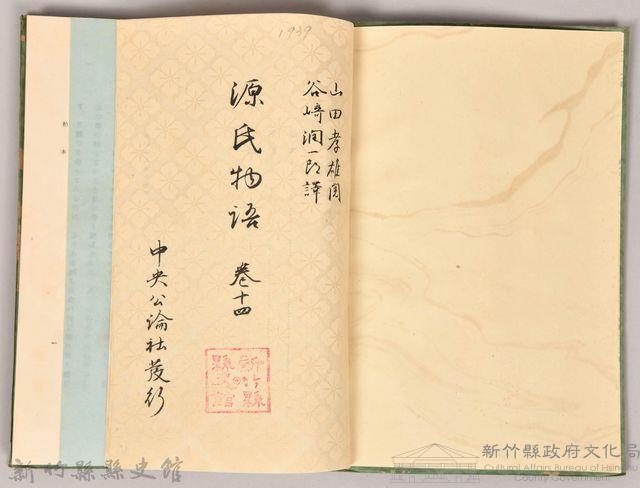 1939
山田孝雄閲
谷崎潤一郎譯
源氏物語 卷十四
中央公論社發行
新竹縣
縣史館
柏木
新竹縣縣史館
新竹縣政府文化局
Cultural Affairs Bureau of Hsinchu